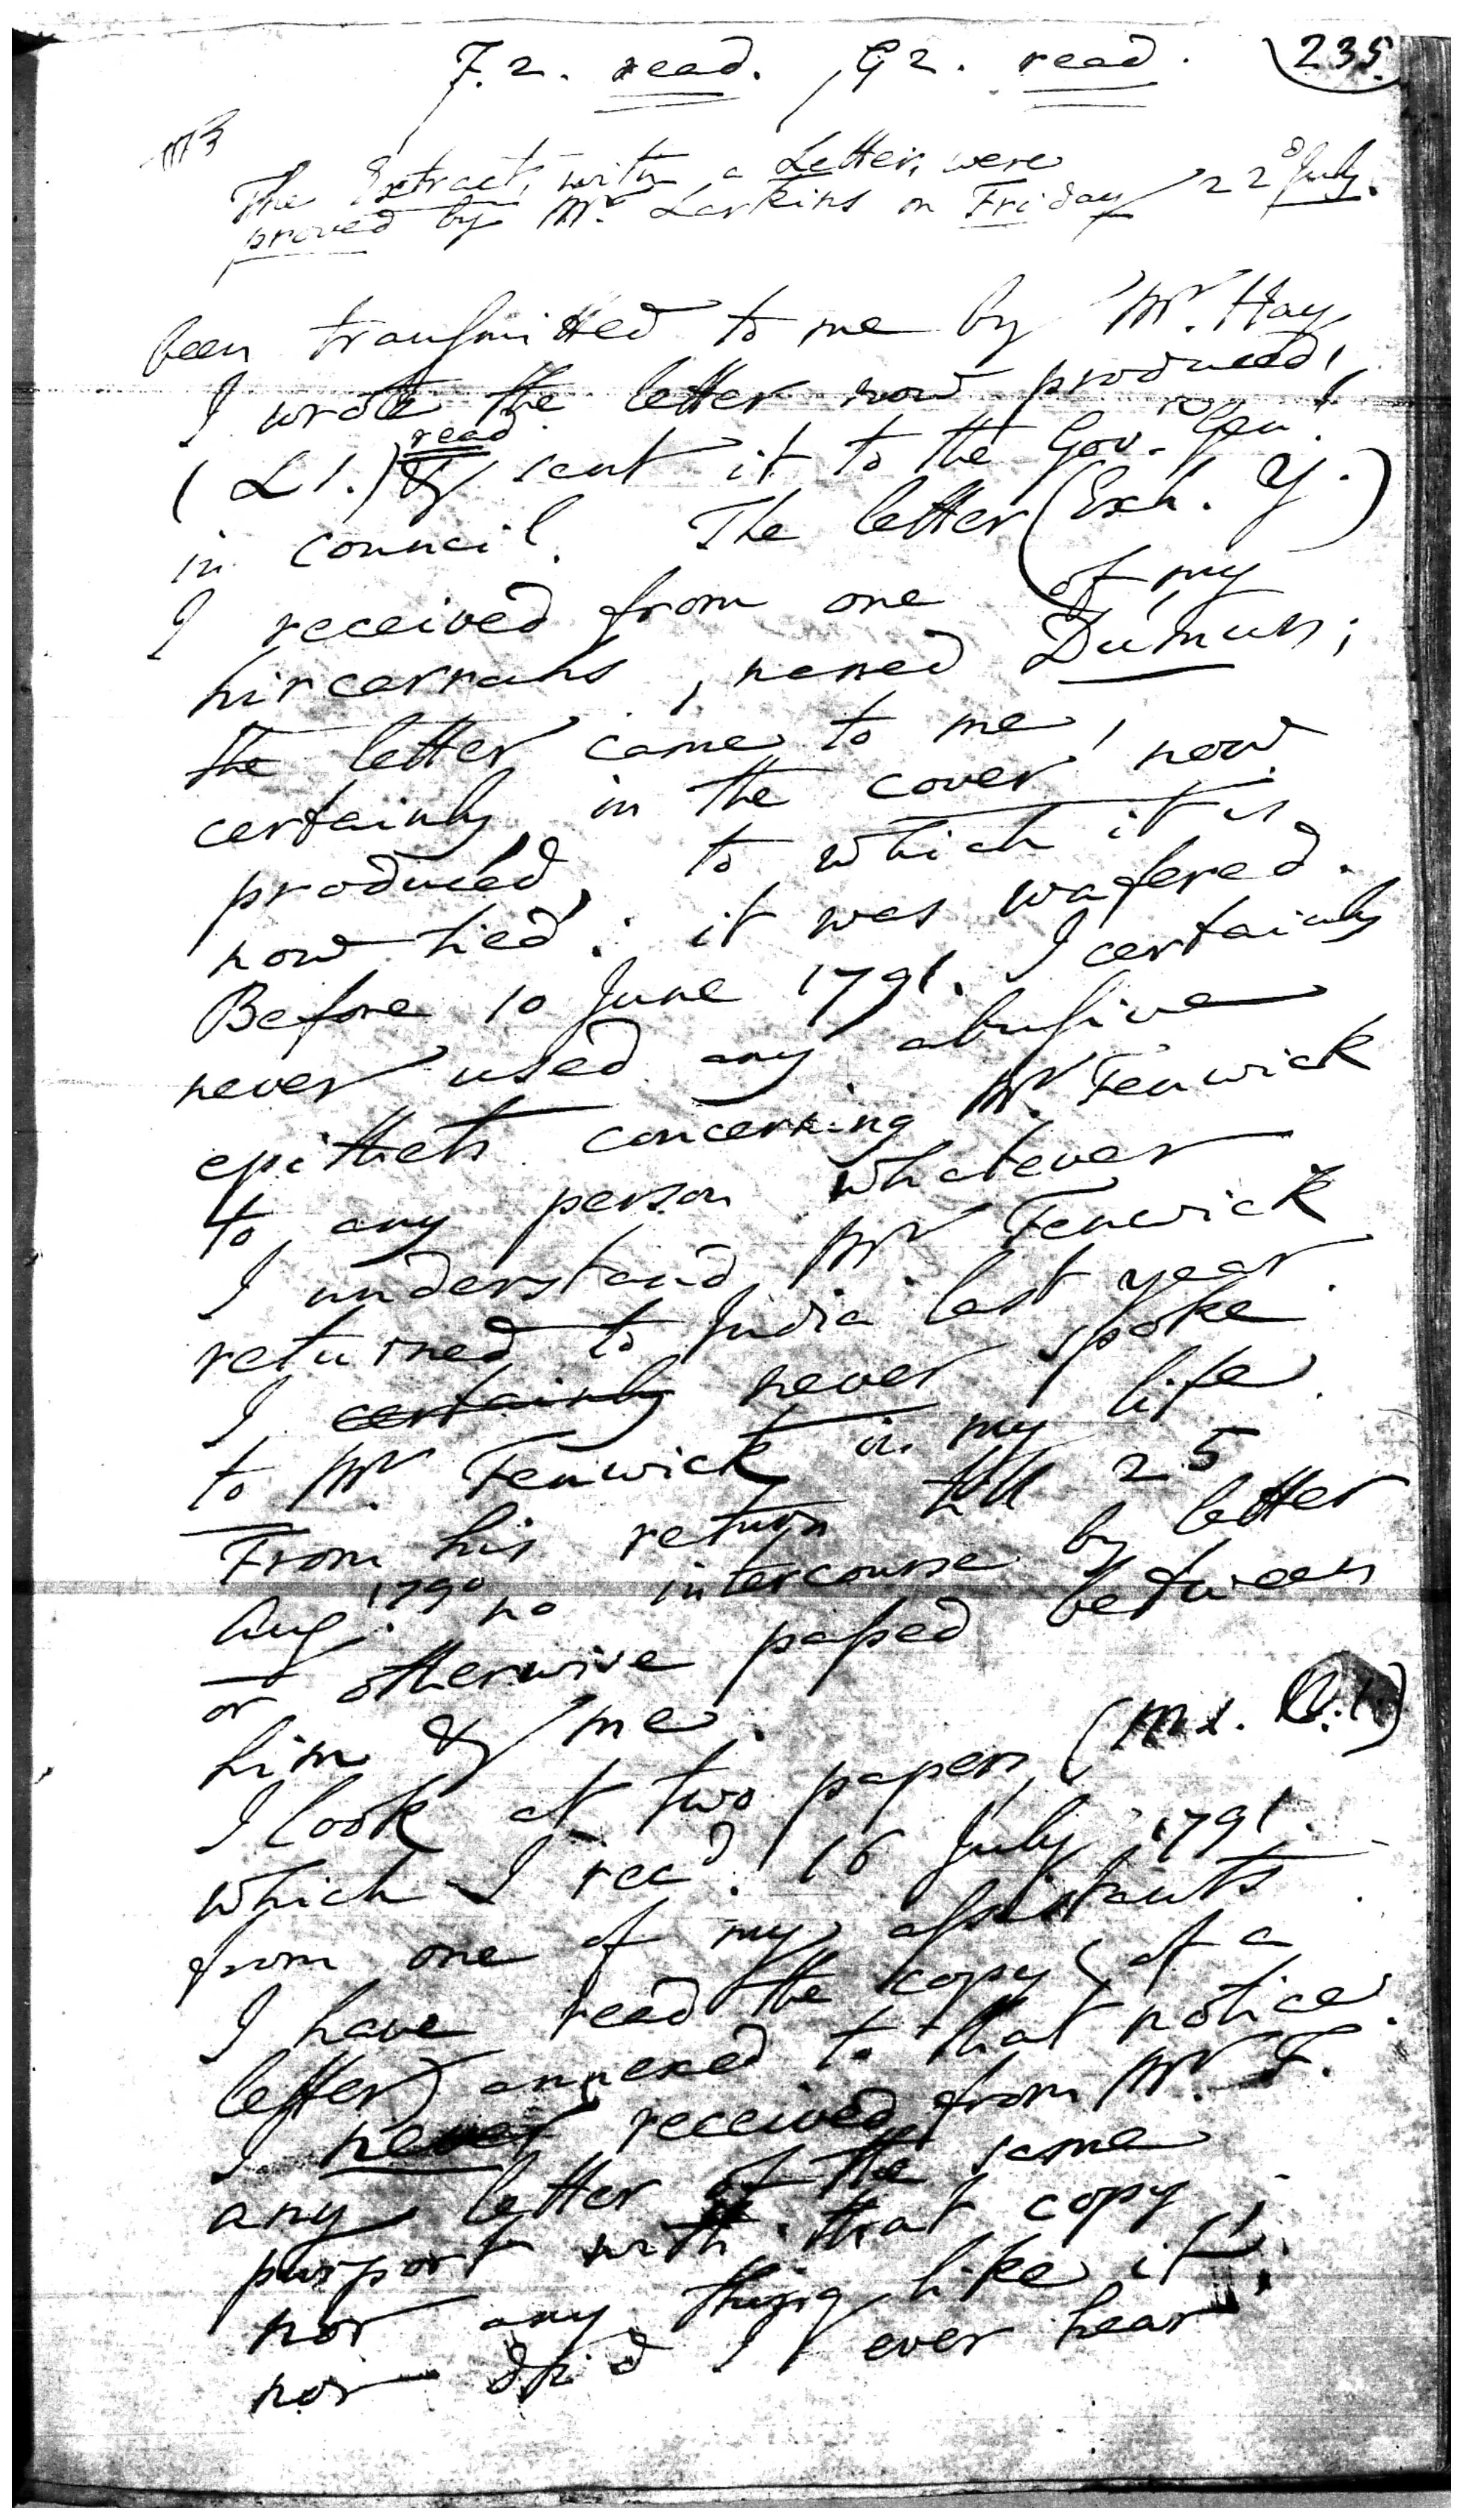 235.
F. 2. read. , G 2. read.
M 3
The Extract, with a Letter, were
proved by Mr. Larkins on Friday 22d July.
been transmitted to me by Mr. Hay
I wrote the letter now produced,
(L 1.) read & sent it to the Gov.r Gen.l
in council. The letter (Exh. Y.)
I received from one of my
hircarrahs, named Dúmun;
the letter came to me,
certainly, in the cover now
produced, to which it is
now tied: it was wafered.
Before 10 June 1791. I certainly
never used any abusive
epithets concerning Mr. Fenwick
to any person whatever
I understand, Mr. Fenwick
returned to India last year.
I certainly never spoke
to Mr. Fenwick in my life.
From his return till 25
Aug. 1790 no intercourse by letter
or otherwise passed between
him & me.
I look at two papers (M 1.
which I recd. 16 July 1791.
from one of my assistants
I have read the copy (of a
letter) annexed to that notice.
I never received from Mr. F.
any letter of the same
purport with that copy;
nor any thing like it;
nor did I ever hear